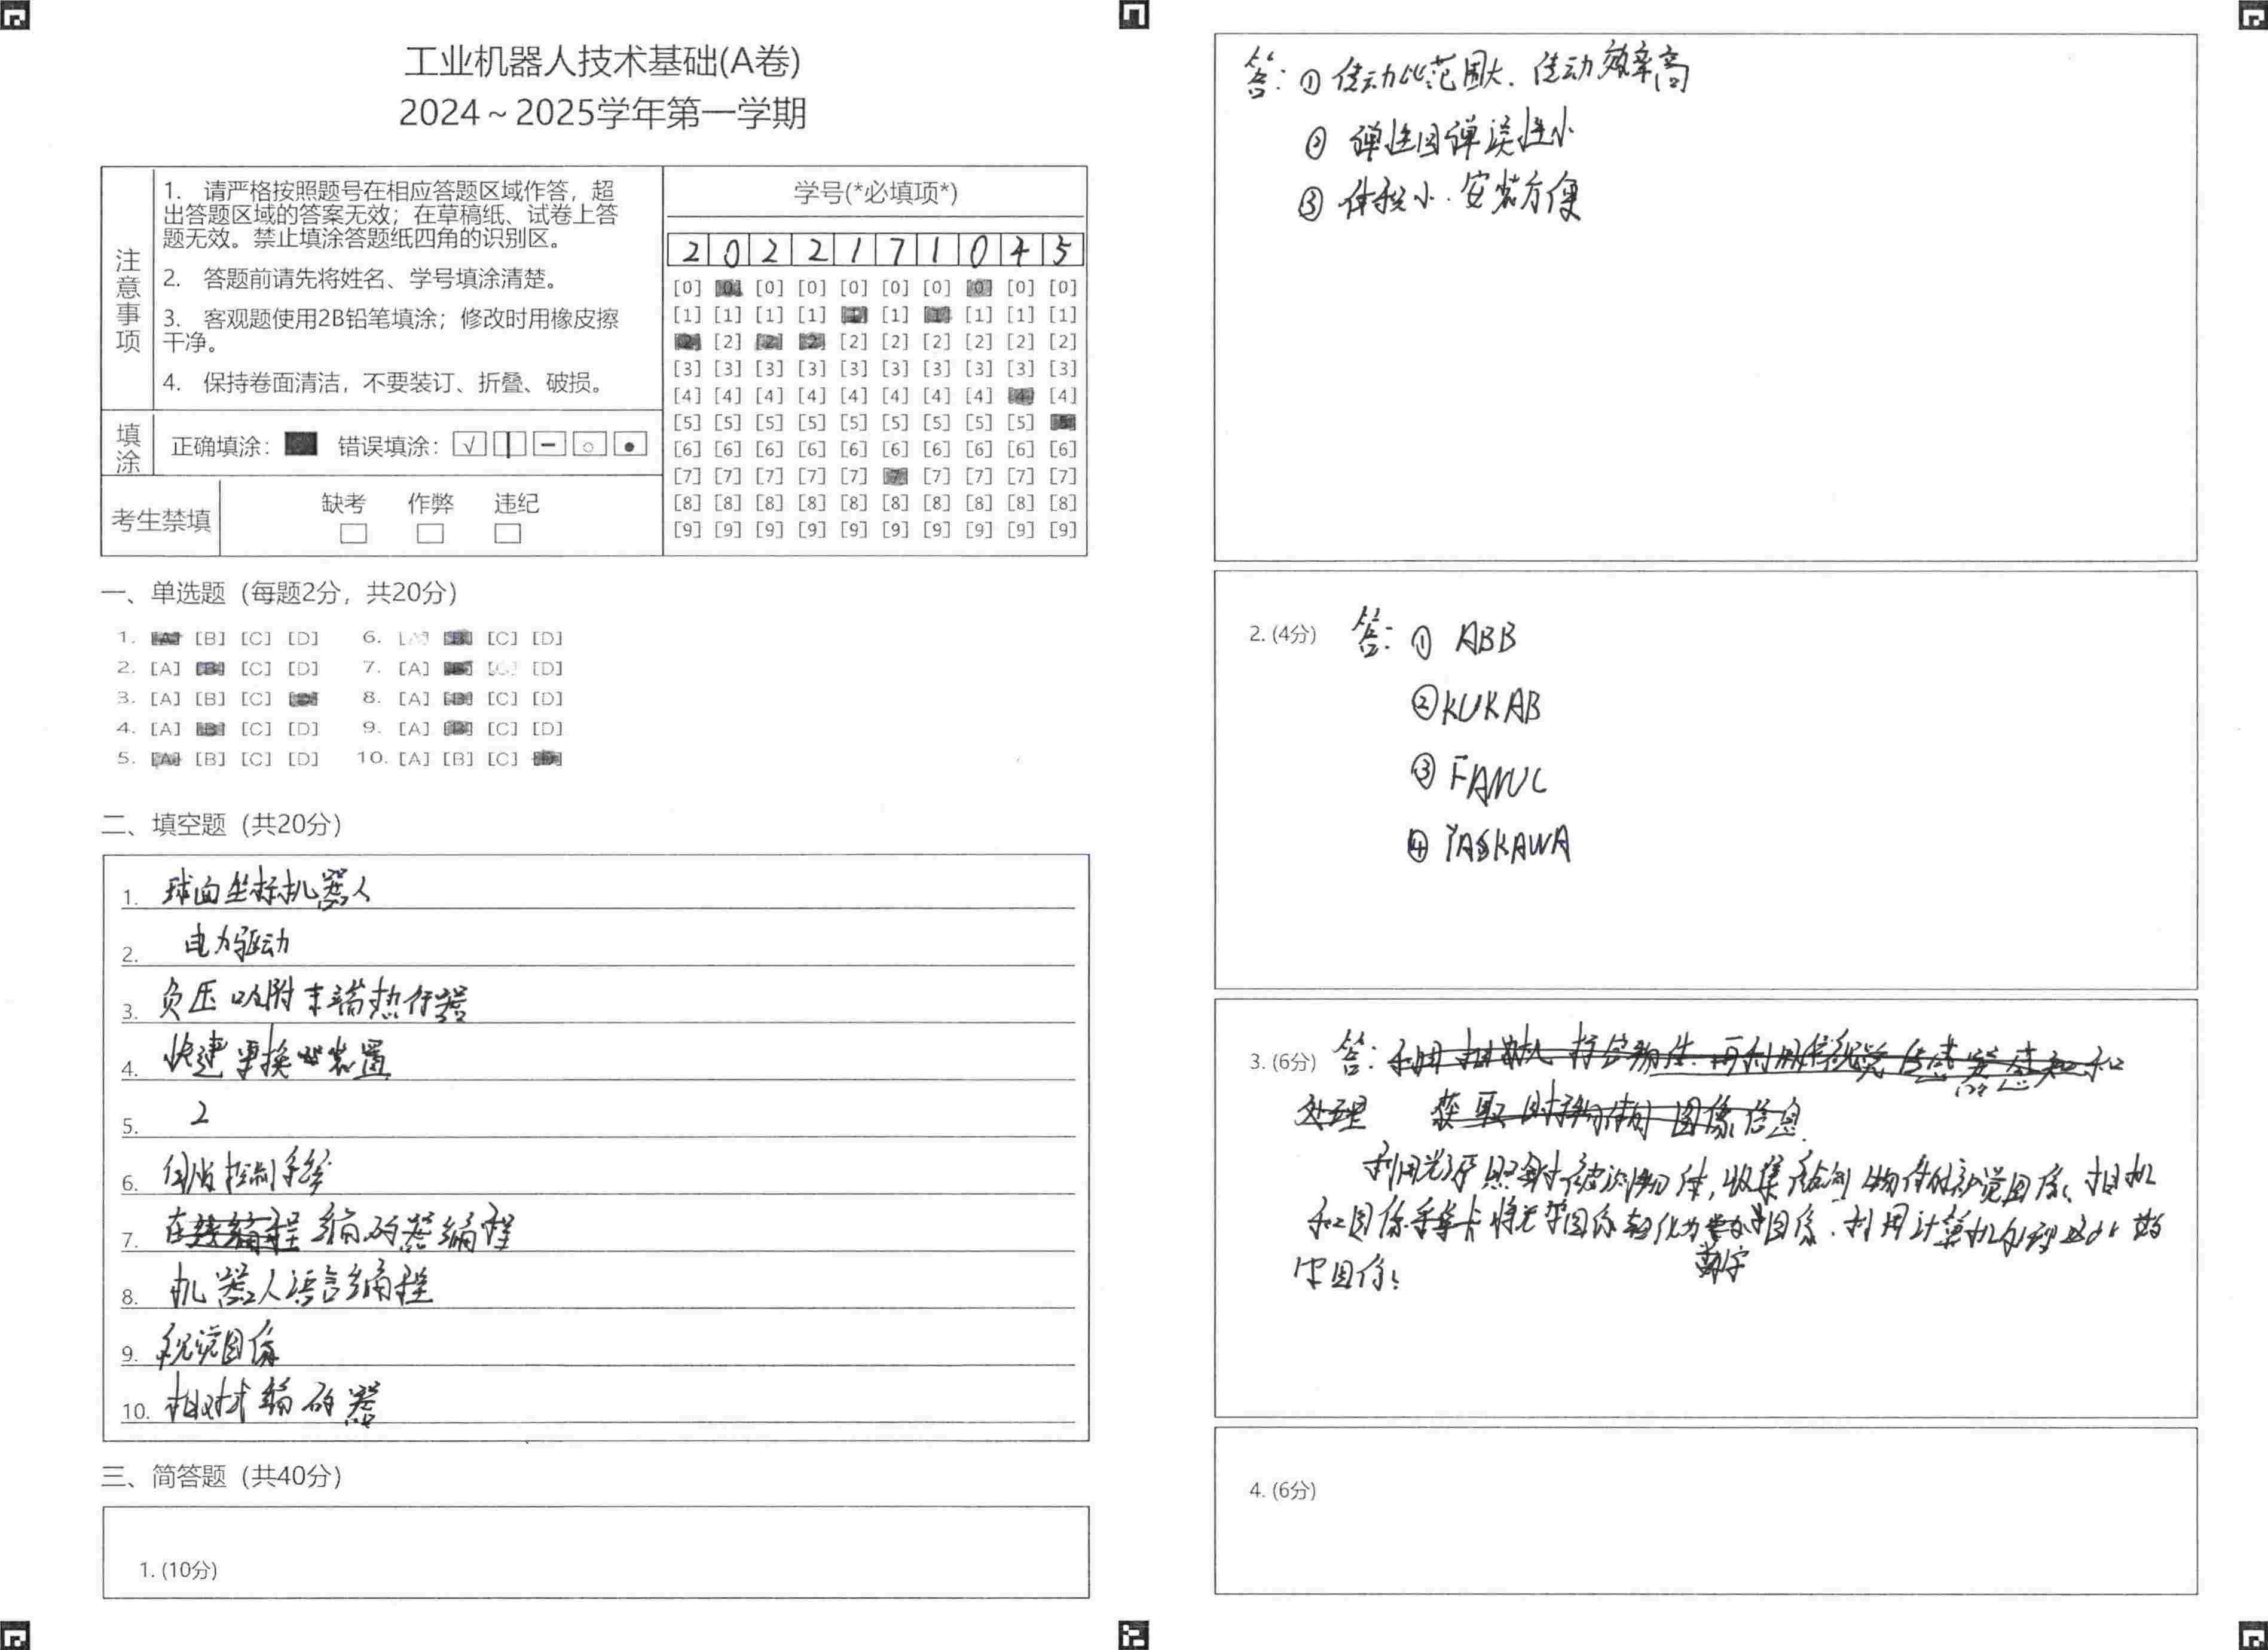 工业机器人技术基础(A卷)
2024～2025学年第一学期
注意事项
1. 请严格按照题号在相应答题区域作答，超
出答题区域的答案无效；在草稿纸、试卷上答
题无效。禁止填涂答题纸四角的识别区。
2. 答题前请先将姓名、学号填涂清楚。
3. 客观题使用2B铅笔填涂；修改时用橡皮擦
干净。
4. 保持卷面清洁，不要装订、折叠、破损。
填涂
正确填涂： 错误填涂：
考生禁填
缺考 作弊 违纪
学号(*必填项*)
2 0 2 2 1 7 1 0 4 5
[0] [0] [0] [0] [0] [0] [0] [0] [0] [0]
[1] [1] [1] [1] [1] [1] [1] [1] [1] [1]
[2] [2] [2] [2] [2] [2] [2] [2] [2] [2]
[3] [3] [3] [3] [3] [3] [3] [3] [3] [3]
[4] [4] [4] [4] [4] [4] [4] [4] [4] [4]
[5] [5] [5] [5] [5] [5] [5] [5] [5] [5]
[6] [6] [6] [6] [6] [6] [6] [6] [6] [6]
[7] [7] [7] [7] [7] [7] [7] [7] [7] [7]
[8] [8] [8] [8] [8] [8] [8] [8] [8] [8]
[9] [9] [9] [9] [9] [9] [9] [9] [9] [9]
一、单选题（每题2分，共20分）
1. [A] [B] [C] [D] 6. [A] [B] [C] [D]
2. [A] [B] [C] [D] 7. [A] [B] [C] [D]
3. [A] [B] [C] [D] 8. [A] [B] [C] [D]
4. [A] [B] [C] [D] 9. [A] [B] [C] [D]
5. [A] [B] [C] [D] 10. [A] [B] [C] [D]
二、填空题（共20分）
1. 球面坐标机器人
2. 电力驱动
3. 负压吸附末端执行器
4. 快速更换装置
5. 2
6. 伺服控制系统
7. 在线编程 编码器编程
8. 机器人语言编程
9. 视觉图像
10. 相对式编码器
三、简答题（共40分）
1. (10分)
答：① 传动比范围大．传动效率高
② 弹性回弹误性小
③ 体积小．安装方便
2. (4分) 答：① ABB
② KUKAB
③ FANUC
④ YASKAWA
3. (6分) 答：利用 物体 再利用 视觉传感器感知和
处理 获取 图像信息
利用光源照射被测物体，收集 物体的视觉图像、相机
和图像采集卡将光学图像转化为数字图像．利用计算机处理这些数
字图像；
4. (6分)